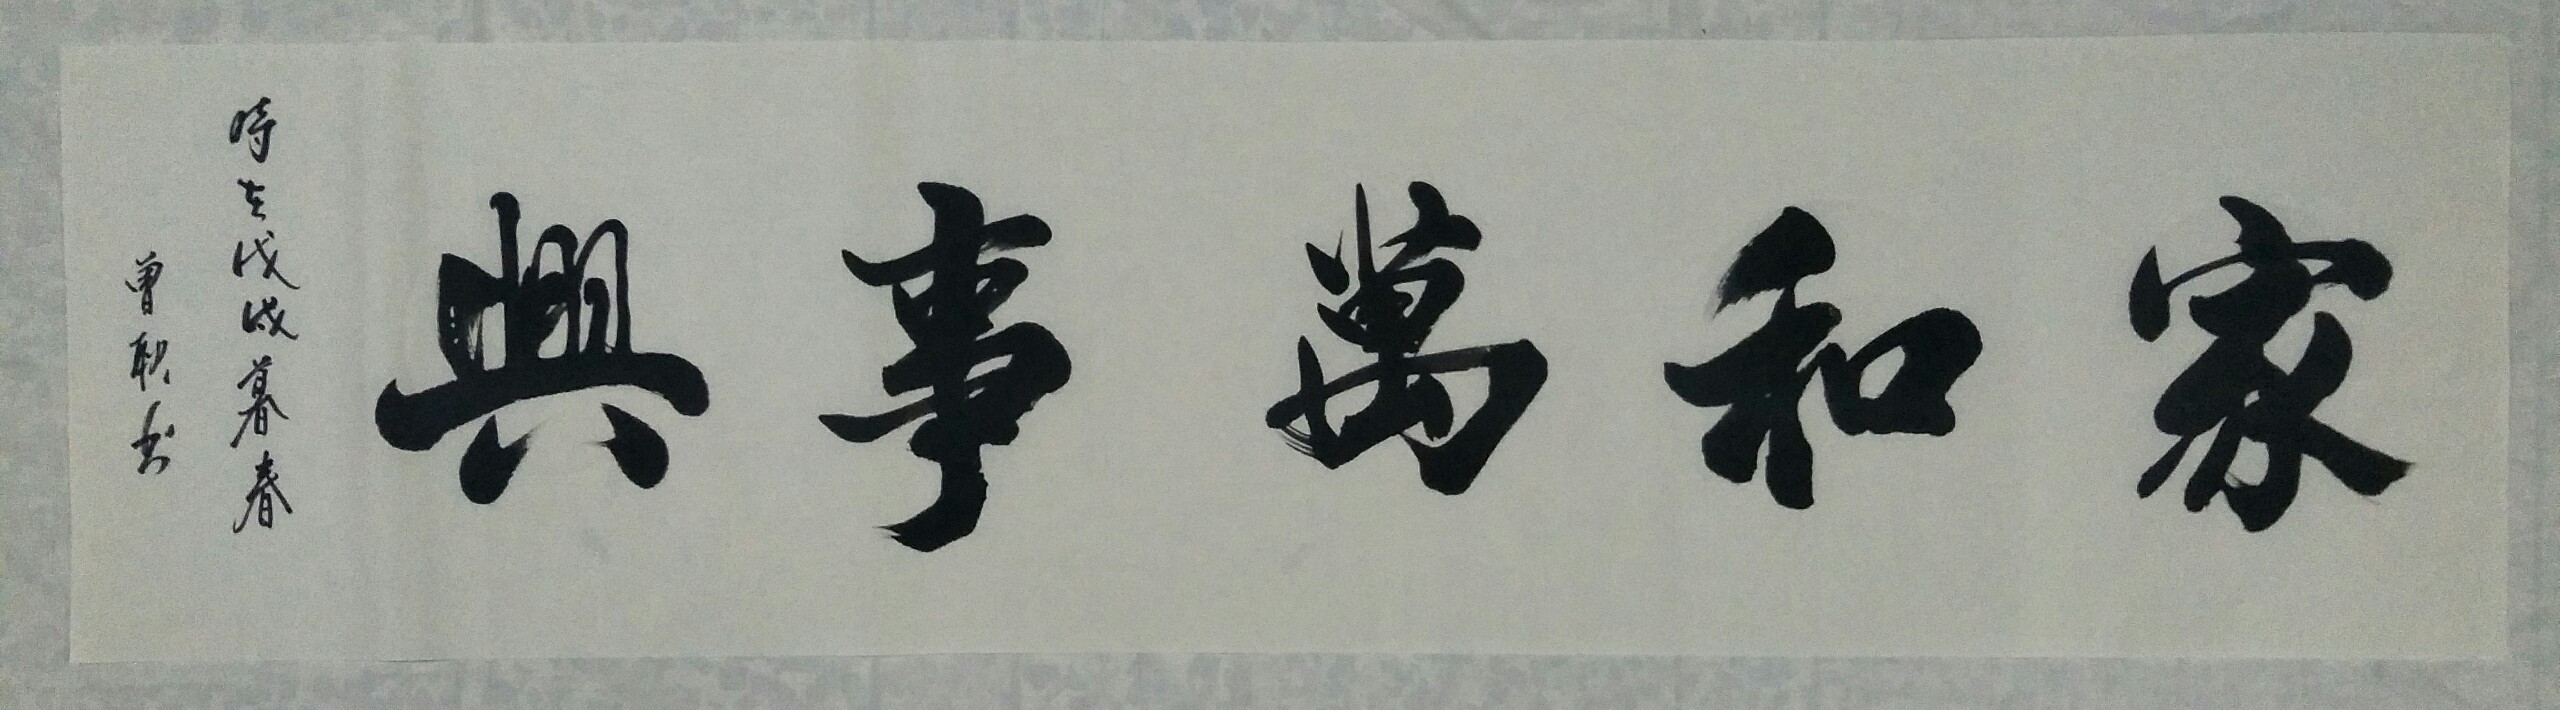 家和萬事興
時在戊戌暮春
曾耿書